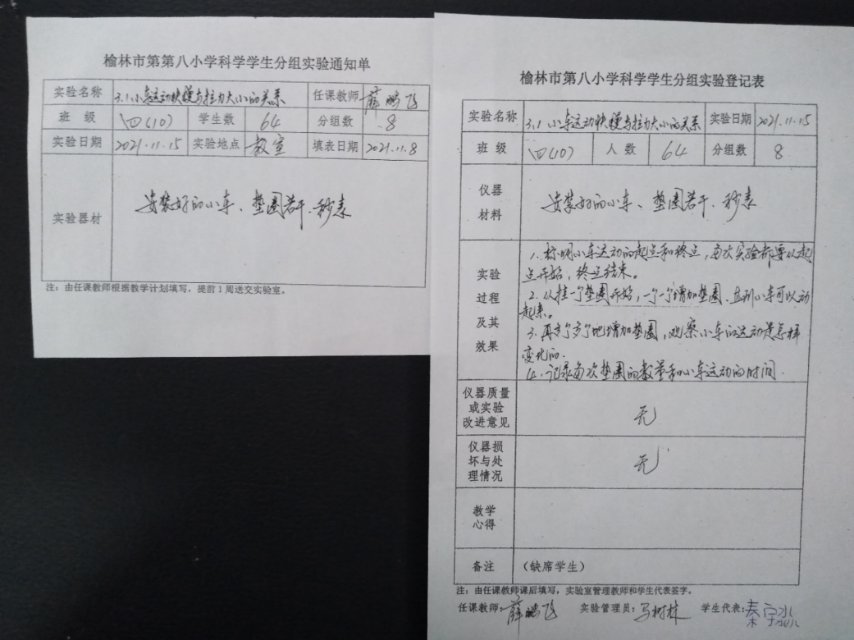 榆林市第第八小学科学学生分组实验通知单
实验名称 3.1小车运动快慢与拉力大小的关系 任课教师 薛鹏飞
班 级 四(10) 学生数 64 分组数 8
实验日期 2021.11.15 实验地点 教室 填表日期 2021.11.8
实验器材 安装好的小车、垫圈若干、秒表
注：由任课教师根据教学计划填写，提前1周送交实验室。
榆林市第八小学科学学生分组实验登记表
实验名称 3.1小车运动快慢与拉力大小的关系 实验日期 2021.11.15
班 级 四(10) 人 数 64 分组数 8
仪器
材料
安装好的小车、垫圈若干、秒表
实验
过程
及其
效果
1.标明小车运动的起点和终点，每次实验都要从起
点开始，终点结束。
2.从挂一个垫圈开始，一个一个增加垫圈，直到小车可以动
起来。
3.再多个多个地增加垫圈，观察小车的运动是怎样
变化的。
4.记录每次垫圈的数量和小车运动的时间
仪器质量
或实验
改进意见
无
仪器损
坏与处
理情况
无
教学
心得
备注 （缺席学生）
注：由任课教师课后填写，实验室管理教师和学生代表签字。
任课教师：薛鹏飞 实验管理员：马树林 学生代表：秦